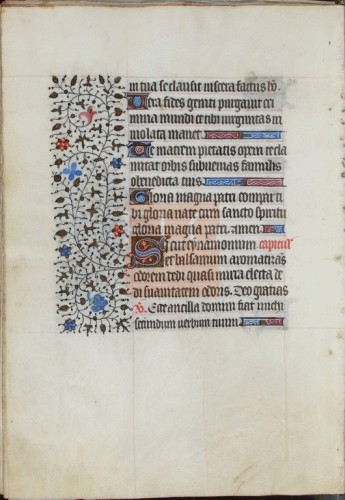 in tua se clausit viscera factus hō.
Uera fides geniti purgauit cri
mina mundi et tibi uirginitas in
uiolata manet.
Te matrem pietatis opem recla
mitat orbis subuenias famulis
o benedicta tuis
Gloria magna patri compar ti
bi gloria nate cum sancto spiritu
gloria magna patri. amen.
Sicut cynamomum capitulū
et balsamum aromatizās
odorem dedi quasi mirra electa de
di suauitatem odoris. Deo gratias
℣. Ecce ancilla domini fiat michi
secundum uerbum tuum